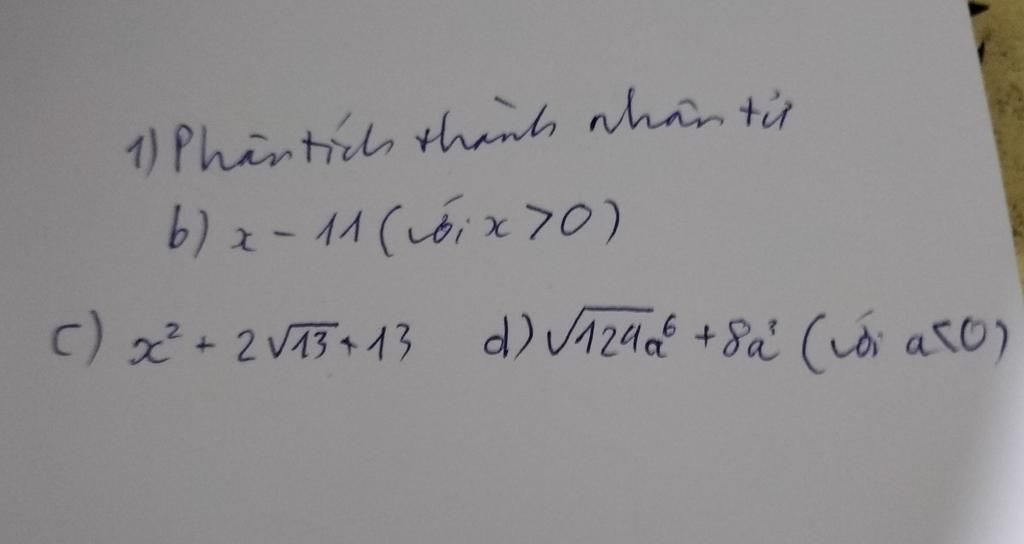 1) Phân tích thành nhân tử
b) x - 11 (với x > 0)
c) x² + 2√13 + 13 d) √129a⁶ + 8a³ (với a < 0)